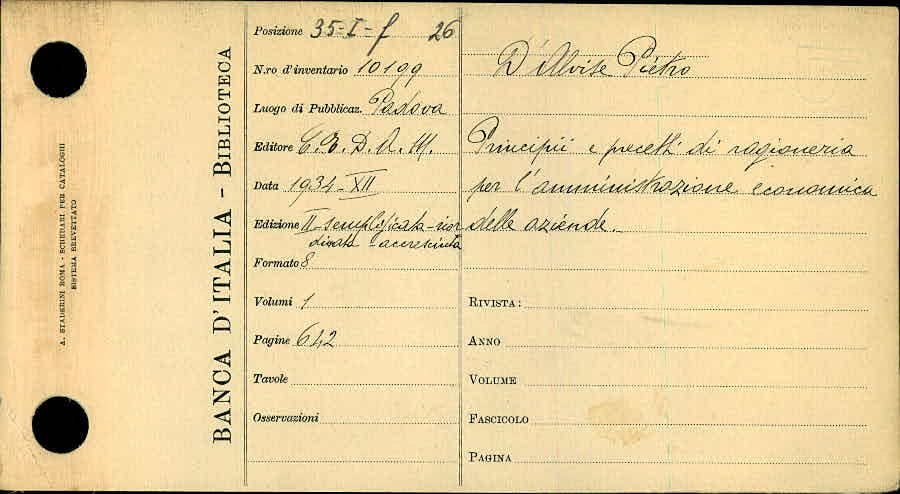 A. STADERINI ROMA - SCHEDARI PER CATALOGHI
SISTEMA BREVETTATO
BANCA D'ITALIA - BIBLIOTECA
Posizione 35-I-f 26
N.ro d'inventario 10199
Luogo di Pubblicaz. Padova
Editore C.E.D.A.M.
Data 1934-XII
Edizione II-semplificata-rior
dinata-accresciuta
Formato 8
Volumi 1
Pagine 642
Tavole
Osservazioni
D'Alvise Pietro
Principii e precetti di ragioneria
per l'amministrazione economica
delle aziende.
RIVISTA:
ANNO
VOLUME
FASCICOLO
PAGINA